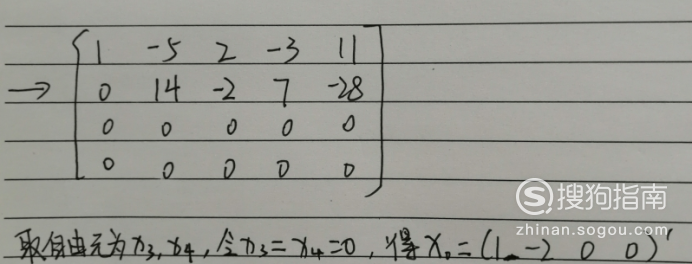 1 -5 2 -3 11
→ 0 14 -2 7 -28
0 0 0 0 0
0 0 0 0 0
搜狗指南
zhinan.sogou.com
取自由元为x₃,x₄,令x₃=x₄=0,得X₀=(1 -2 0 0)'